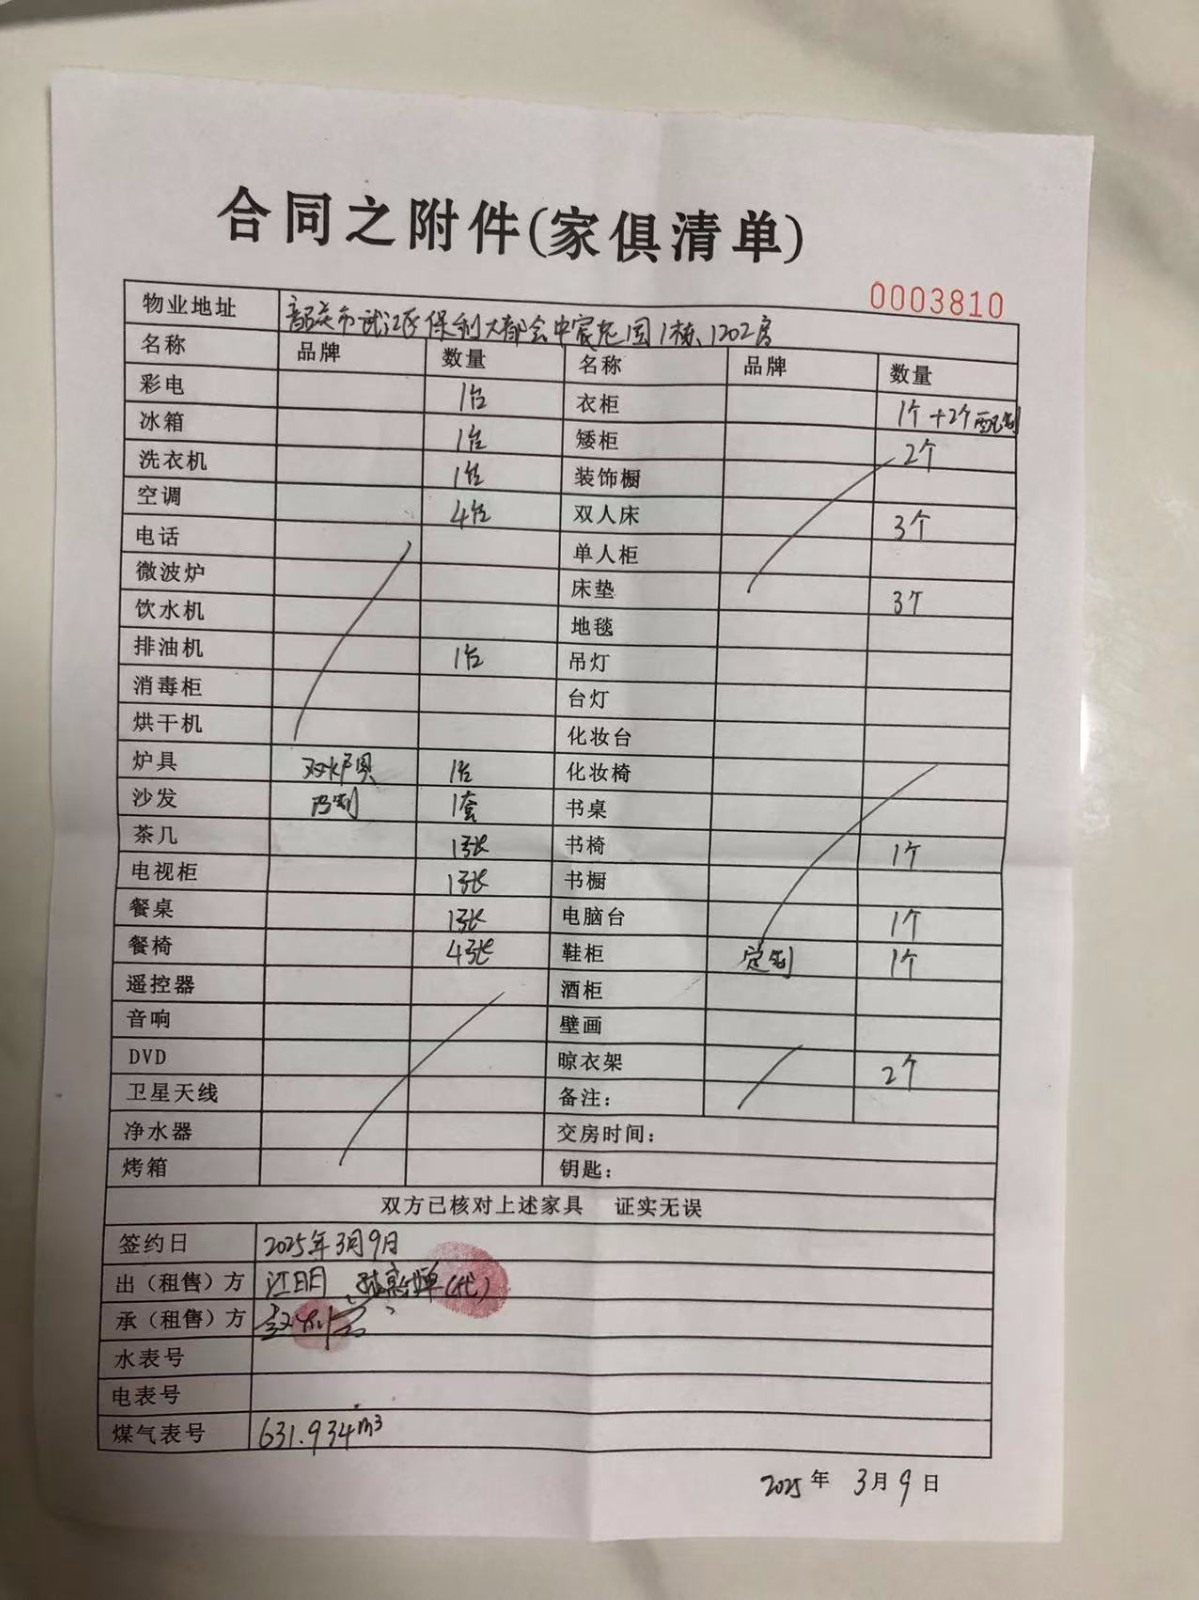 合同之附件(家俱清单)
0003810
物业地址 韶关市武江区保利大都会中宸花园1栋、1202房
名称 品牌 数量 名称 品牌 数量
彩电 1台 衣柜 1个+2个配制
冰箱 1台 矮柜 2个
洗衣机 1台 装饰橱
空调 4台 双人床 3个
电话 单人柜
微波炉 床垫 3个
饮水机 地毯
排油机 1台 吊灯
消毒柜 台灯
烘干机 化妆台
炉具 双炉具 1台 化妆椅
沙发 1套 书桌
茶几 1张 书椅 1个
电视柜 1张 书橱
餐桌 1张 电脑台 1个
餐椅 4张 鞋柜 定制 1个
遥控器 酒柜
音响 壁画
DVD 晾衣架 2个
卫星天线 备注:
净水器 交房时间:
烤箱 钥匙:
双方已核对上述家具 证实无误
签约日 2025年3月9日
出(租售)方 江明 (代)
承(租售)方
水表号
电表号
煤气表号 631.934m³
2025年 3月9日